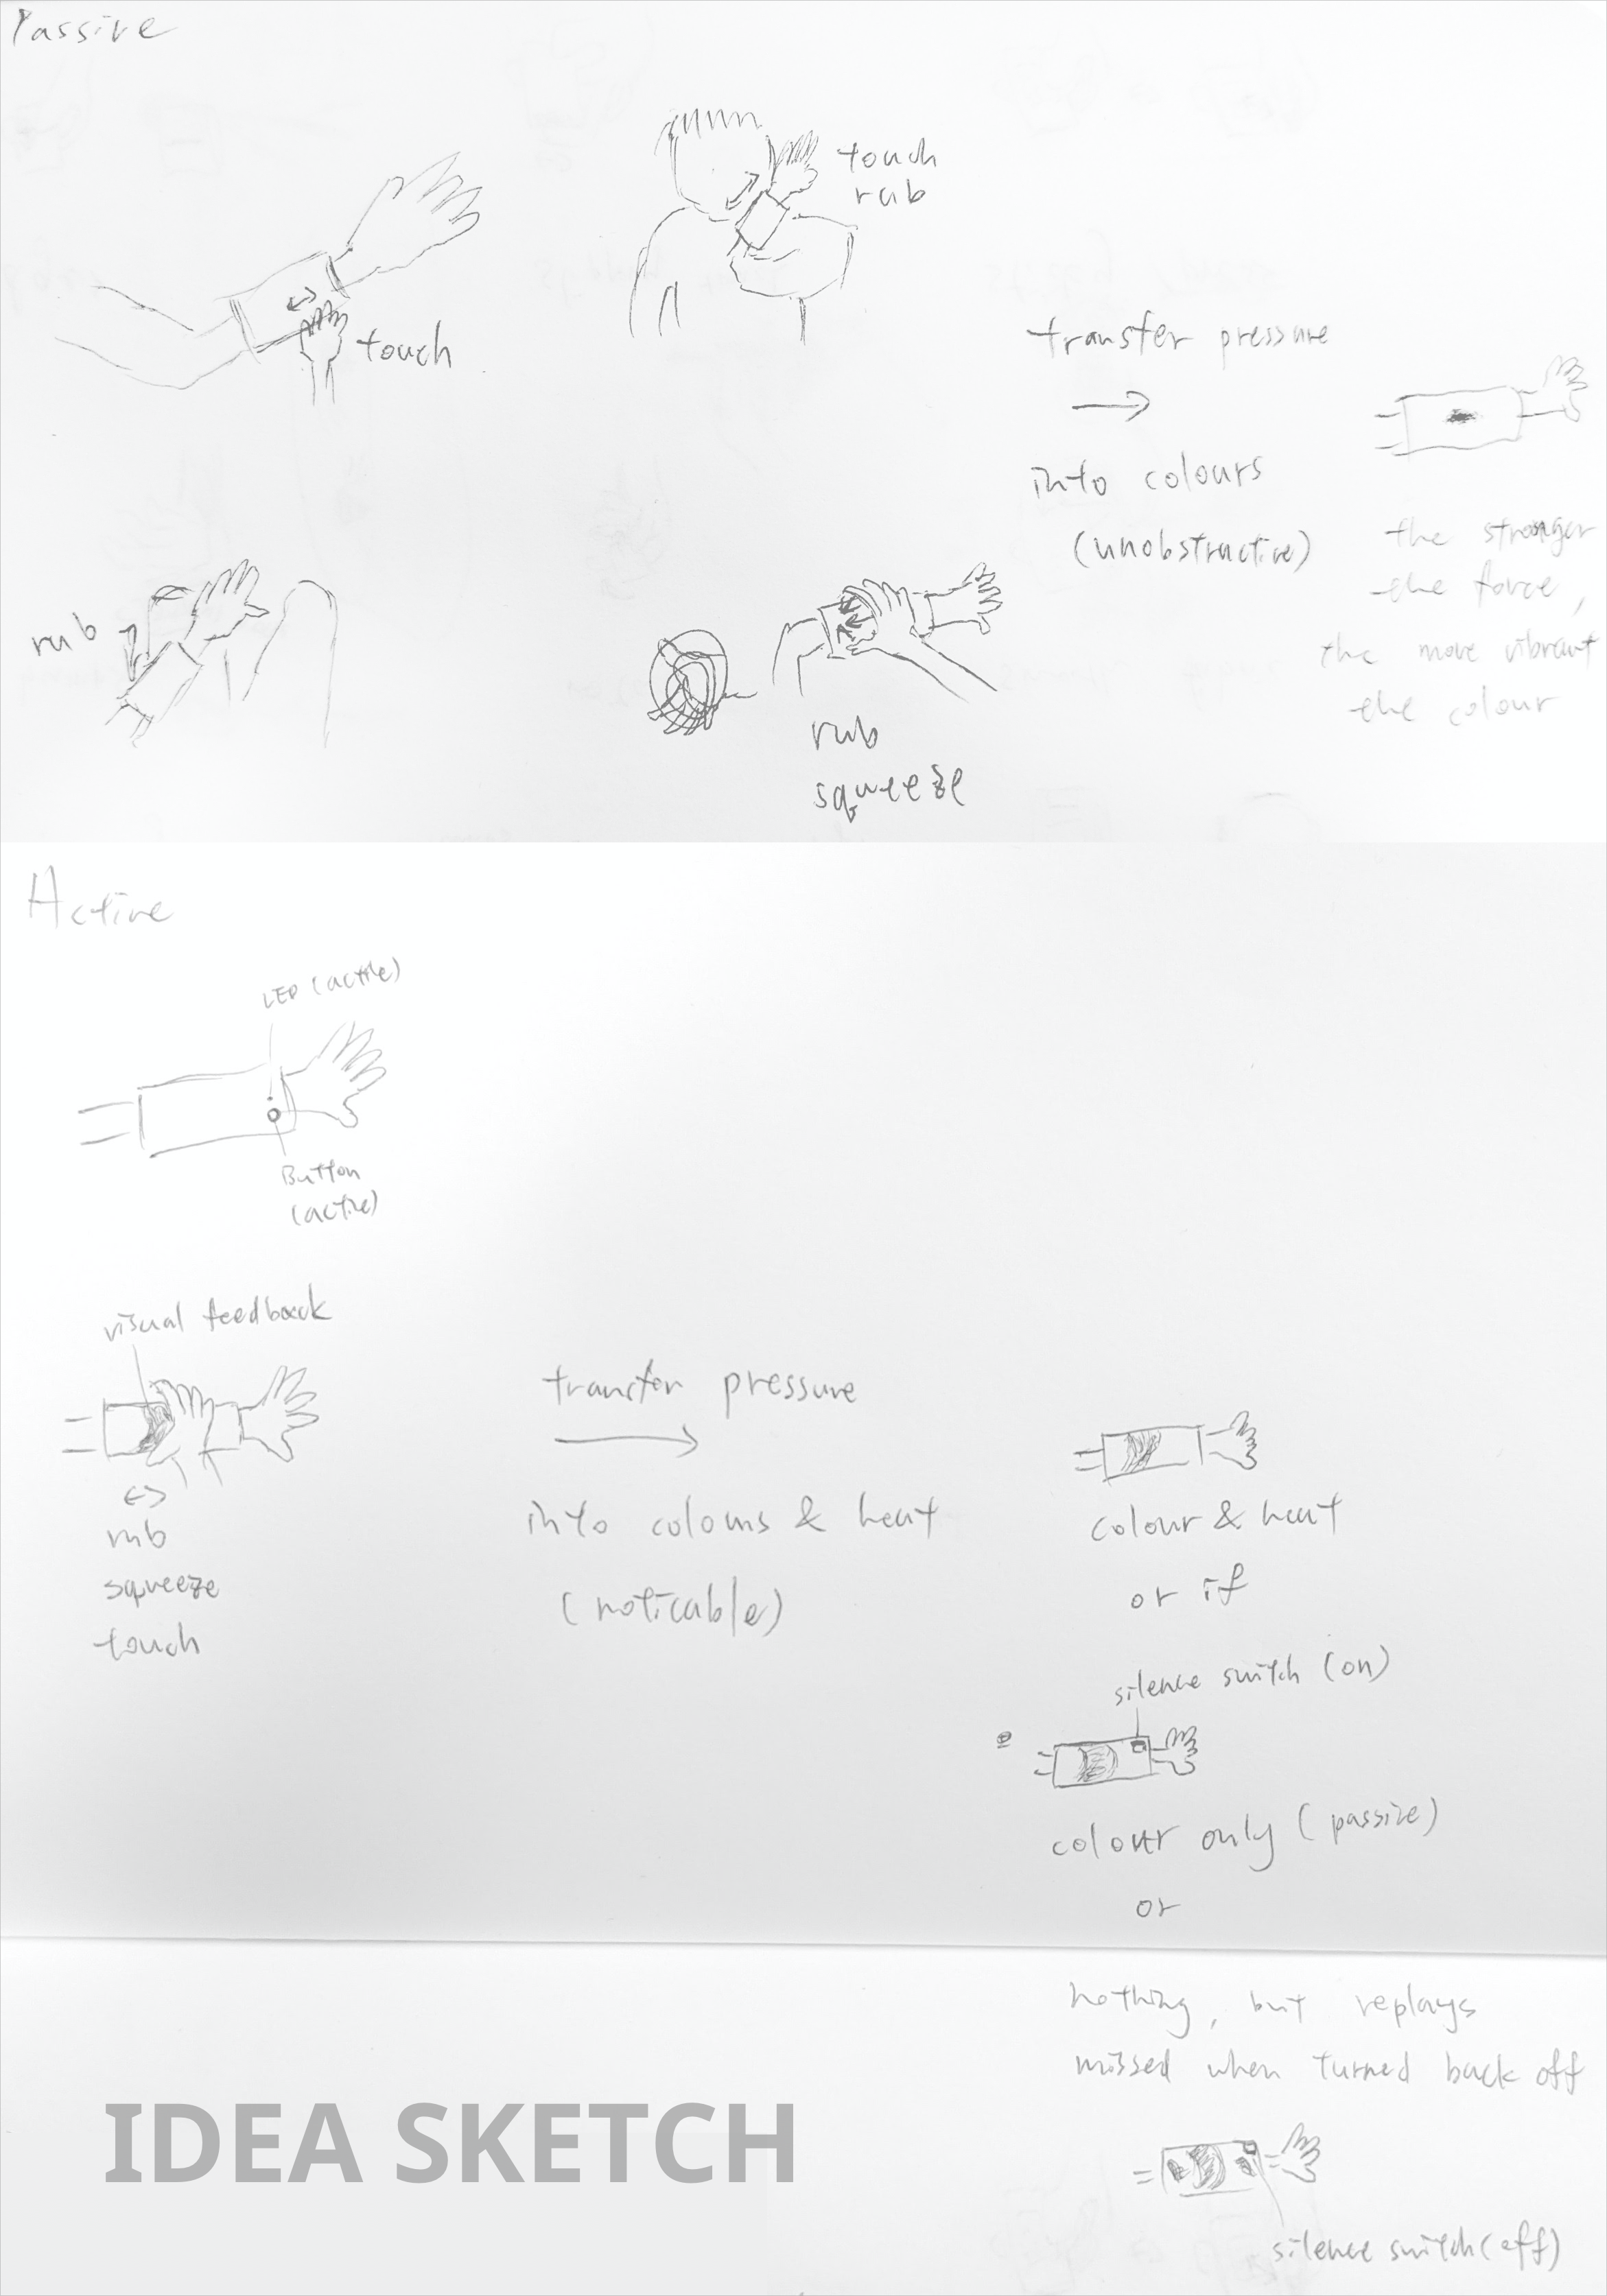 Passive
touch
touch
rub
rub
rub
squeeze
transfer pressure
into colours
(unobstructive)
the stronger
the force,
the more vibrant
the colour
Active
LED (active)
Button
(active)
visual feedback
rub
squeeze
touch
transfer pressure
into colours & heat
(noticable)
colour & heat
or if
silence switch (on)
colour only (passive)
or
nothing, but replays
missed when turned back off
silence switch (off)
IDEA SKETCH